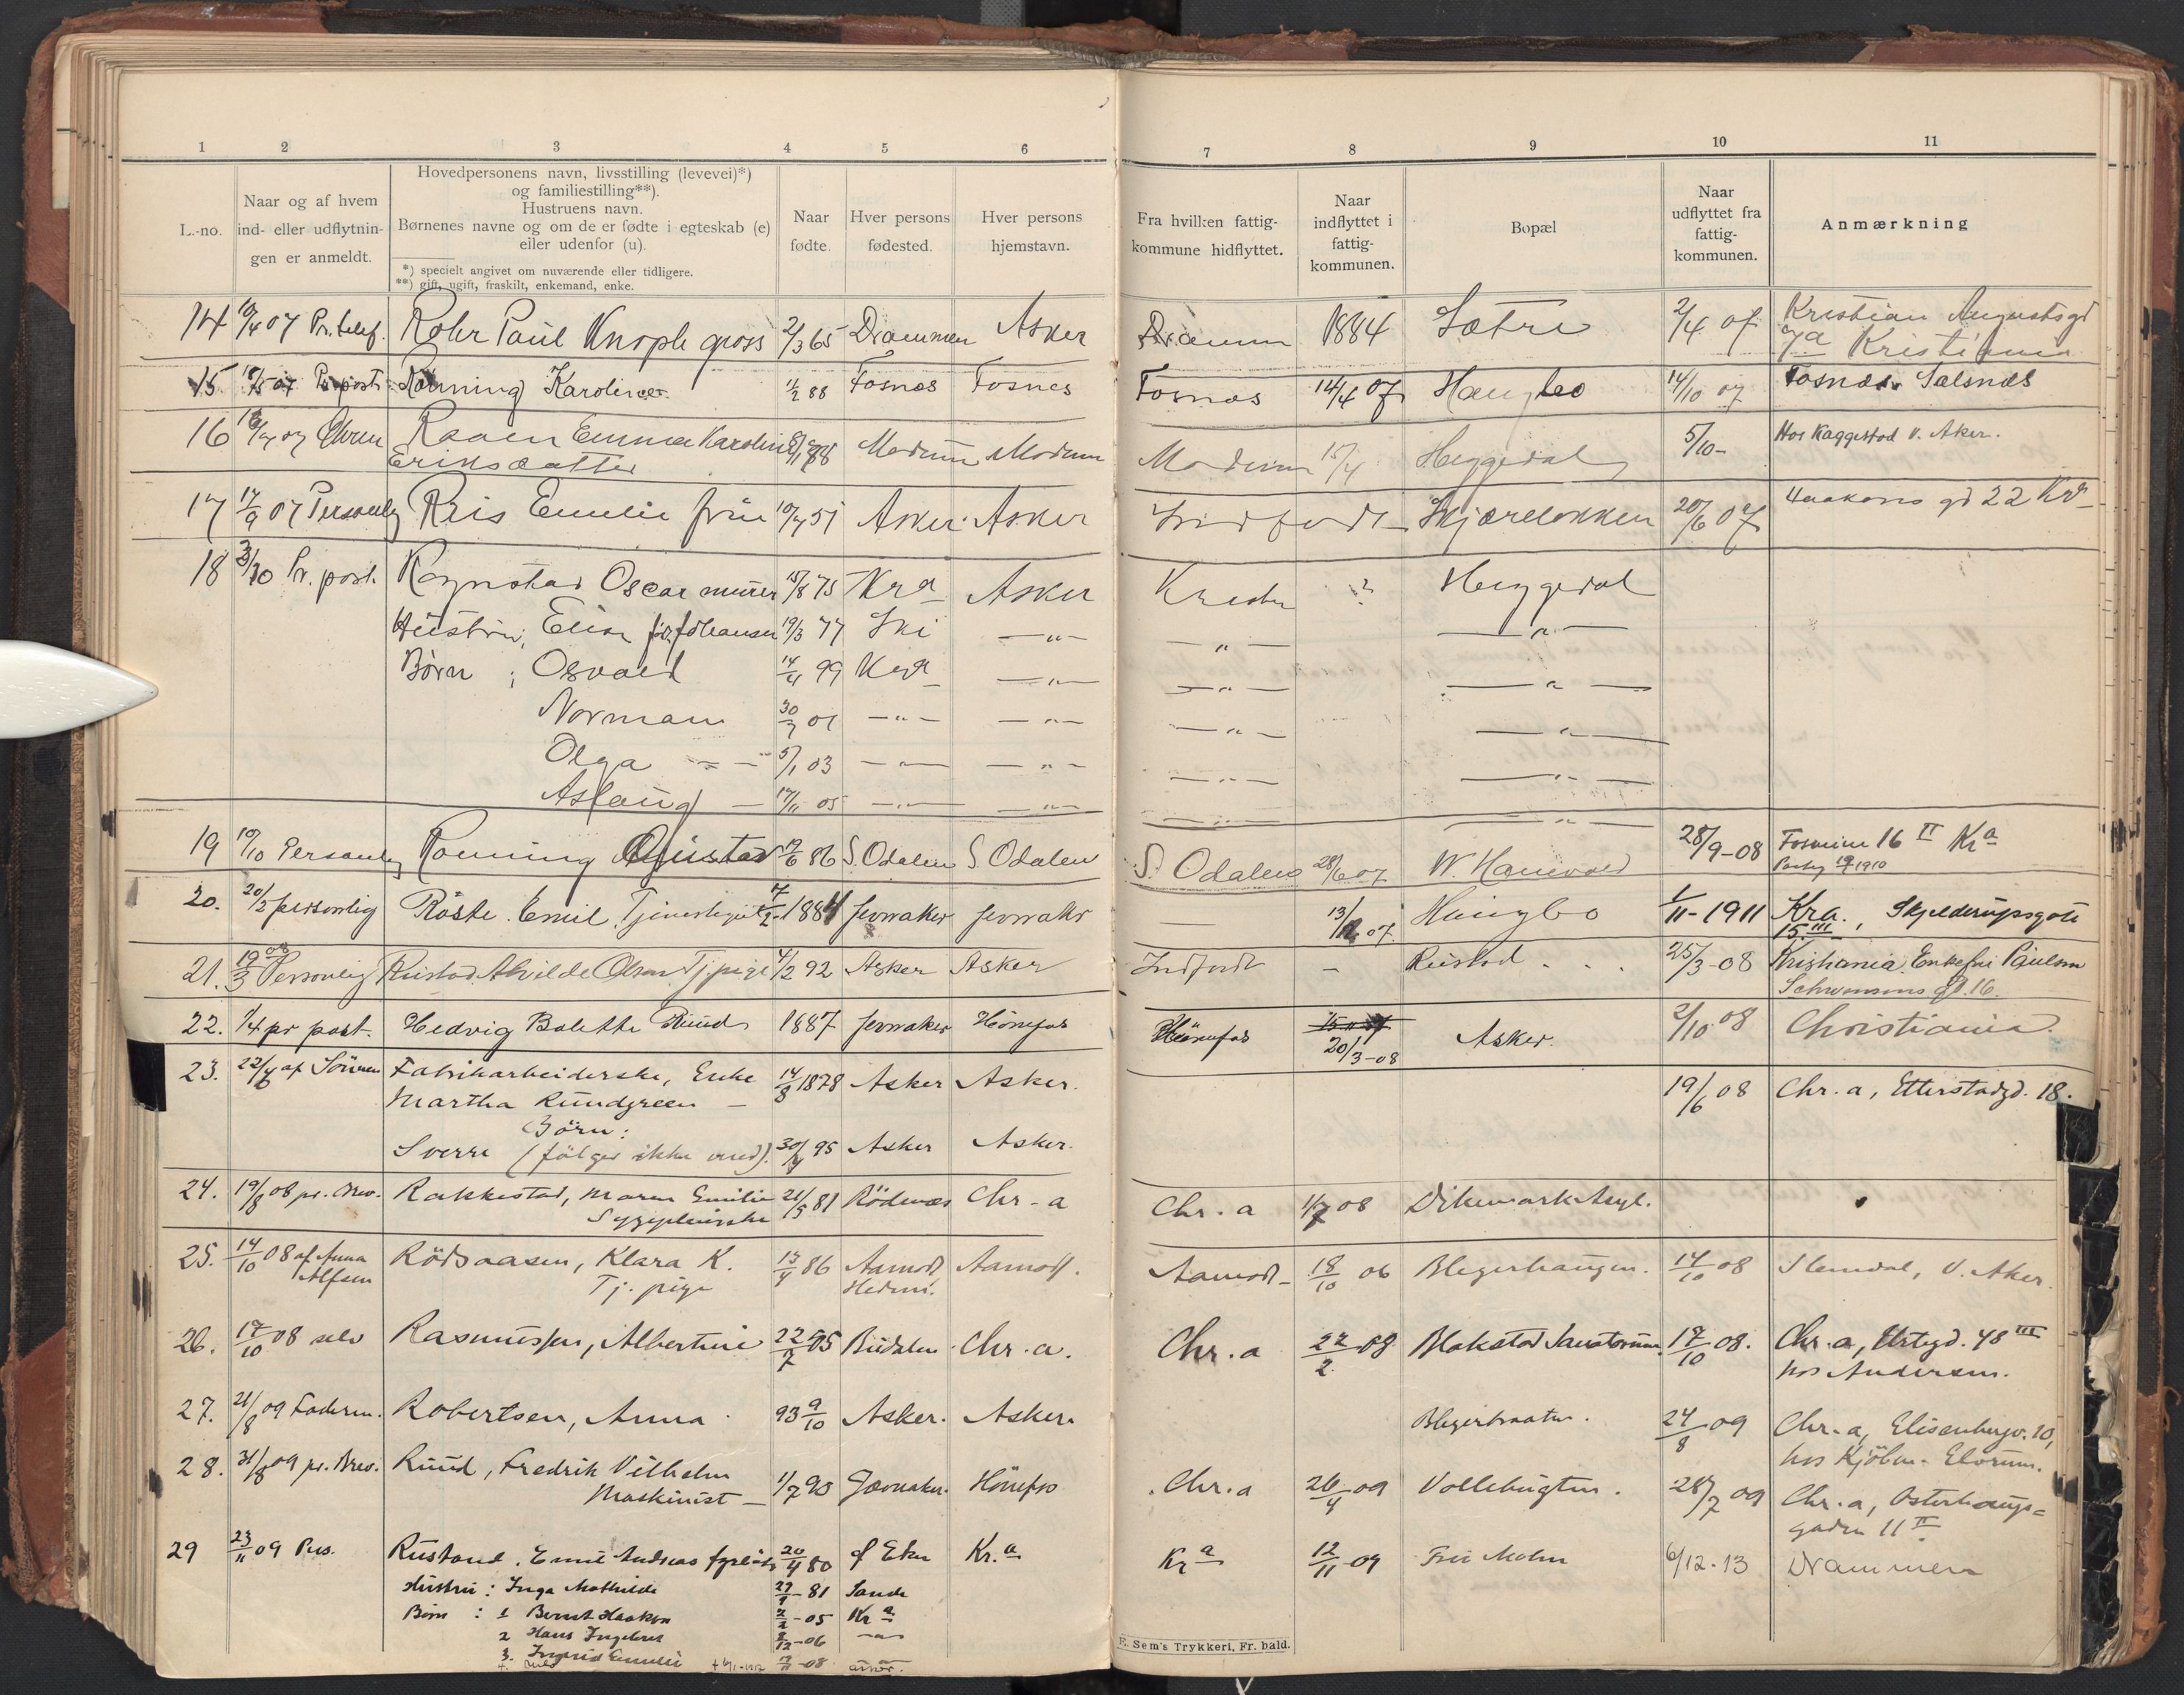 1 2 3 4 5 6 7 8 9 10 11
L.-no.
Naar og af hvem
ind- eller udflytnin-
gen er anmeldt.
Hovedpersonens navn, livsstilling (levevei)*)
og familiestilling**).
Hustruens navn.
Børnenes navne og om de er fødte i egteskab (e)
eller udenfor (u).
*) specielt angivet om nuværende eller tidligere.
**) gift, ugift, fraskilt, enkemand, enke.
Naar
fødte.
Hver persons
fødested.
Hver persons
hjemstavn.
Fra hvilken fattig-
kommune hidflyttet.
Naar
indflyttet i
fattig-
kommunen.
Bopæl
Naar
udflyttet fra
fattig-
kommunen.
Anmærkning
14 10/4 07 Pr. telef. Rohr Paul Knoph gross 2/3 65 Drammen Asker Drammen 1884 Sætre 2/4 07 Kristian Augustsgd
7a Kristiania
15 Pr post Rønning Karoline 1/2 88 Fosnes Fosnes Fosnæs 14/4 07 Haugbo 14/10 07 Fosnæs Salsnæs
16 Raaen Emma Karoline Modum Modum Modum 15/4 Heggedal 5/10- Hos Kaggestad V. Aker.
Eriksdatter
17 17/9 07 Personlig Riis Emilie frue 10/7 51 Asker Asker Indfødt Skjærelokken 20/6 07 Haakons gd 22 Kra
18 3/10 Pr. post. Oscar murer 15/8 75 Kra Asker ? Heggedal
Hustru; Elise f. Johansen 19/3 77 Ski —"— —"— —"—
Børn ; Osvald 14/4 99 Kra —"— —"— —"—
Norman 30/7 01 —"— —"— —"— —"—
Olga —"— 5/1 03 —"— —"— —"— —"—
Aslaug — 17/11 05 —"— —"— —"— —"—
19 10/10 Personlig Rønning Gustav 19/6 86 S. Odalen S. Odalen S. Odalen 28/6 07 W. Hanevold 28/9-08 16 II Kra
1910
20. 20/2 personlig Röste Emil, 1884 Jevnaker Jevnaker — 13/12 07 Haugbo 1/11-1911 Kra., Skjelderupsgate
15 III
21. 19/3 08 Personlig Rustad Alvilde Olsen Tj. pige 4/2 92 Asker Asker Indfødt — Rustad 25/3-08 Kristiania Enkefru Paulsen
Schwensens gt. 16.
22. 1/4 pr post. Hedvig Bolette Ruud 1887 Jevnaker Hønefos Hønefos 20/3-08 Asker. 2/10 08 Christiania.
23. 22/6 af Fabrikarbeiderske, Enke 14/8 1878 Asker Asker. 19/6 08 Chr. a, Etterstadgd. 18.
Martha Rundgreen —
Börn:
Sverre (følger ikke med). 30/4 95 Asker Asker.
24. 19/8 08 pr. Brev. Rakkestad, Maren Emilie 21/5 81 Rödenæs Chr-a Chr. a 1/7 08 Dikemark Asyl.
Sygepleierske
25. 14/10 08 af Anna Rödsaasen, Klara K. 13/4 86 Aamodt Aamodt. Aamodt- 18/10 06 Blegerhaugen. 14/10 08 Slemdal, V. Aker.
Alfsen Tj. pige Hedem.
26. 17/10 08 selv Rasmussen, Albertine 22/7 05 Budalen Chr. a. Chr. a 22/2 08 Blakstad Sanatorium. 17/10 08. Chr. a, Urtegd. 48 III
hos Andersen.
27. 21/8 09 Faderen. Robertsen, Anna. 93 9/10 Asker. Asker. Blegerbraaten. 24/8 09 Chr. a, Elisenbergv. 10,
hos Kjöbm.
28. 31/8 09 pr. Brev. Ruud, Fredrik Vilhelm 1/7 90 Jevnaker. Hönefos Chr. a 26/4 09 Vollebugten. 28/7 09 Chr. a, Osterhaugs-
Maskinist — gaden 11 II
29 23/11 09 Pers. Rustand, Emil Andreas 20/4 80 Ø Eker Kr.a Kr a 12/11-09 Fru Mohn 6/12-13 Drammen
Hustru: Inga Mathilde 81 Sande
Börn: 1 Bernt Haakon -05 Kr a
2 Hans Ingebret -06 —"—
3. Ingrid Emilie -08 Asker.
E. Sem's Trykkeri, Fr. hald.